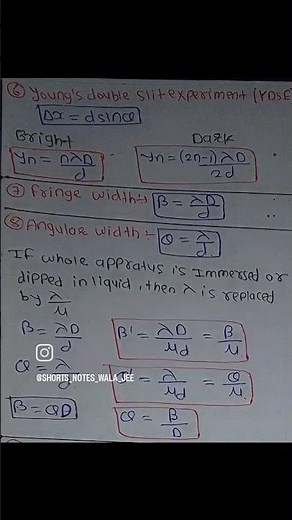 ⑥ Young's double slit experiment (YDSE
Δx = dsinθ
Bright Dark
yn = nλD/d yn = (2n-1)λD/2d
⑦ Fringe width:- β = λD/d
⑧ Angular width:- θ = λ/d
If whole appratus is Immersed or
dipped in liquid, then λ is replaced
by λ/μ
β = λD/d β' = λD/μd = β/μ
θ = λ/d θ' = λ/μd = θ/μ
@SHORTS_NOTES_WALA_JEE
β = θD θ = β/D